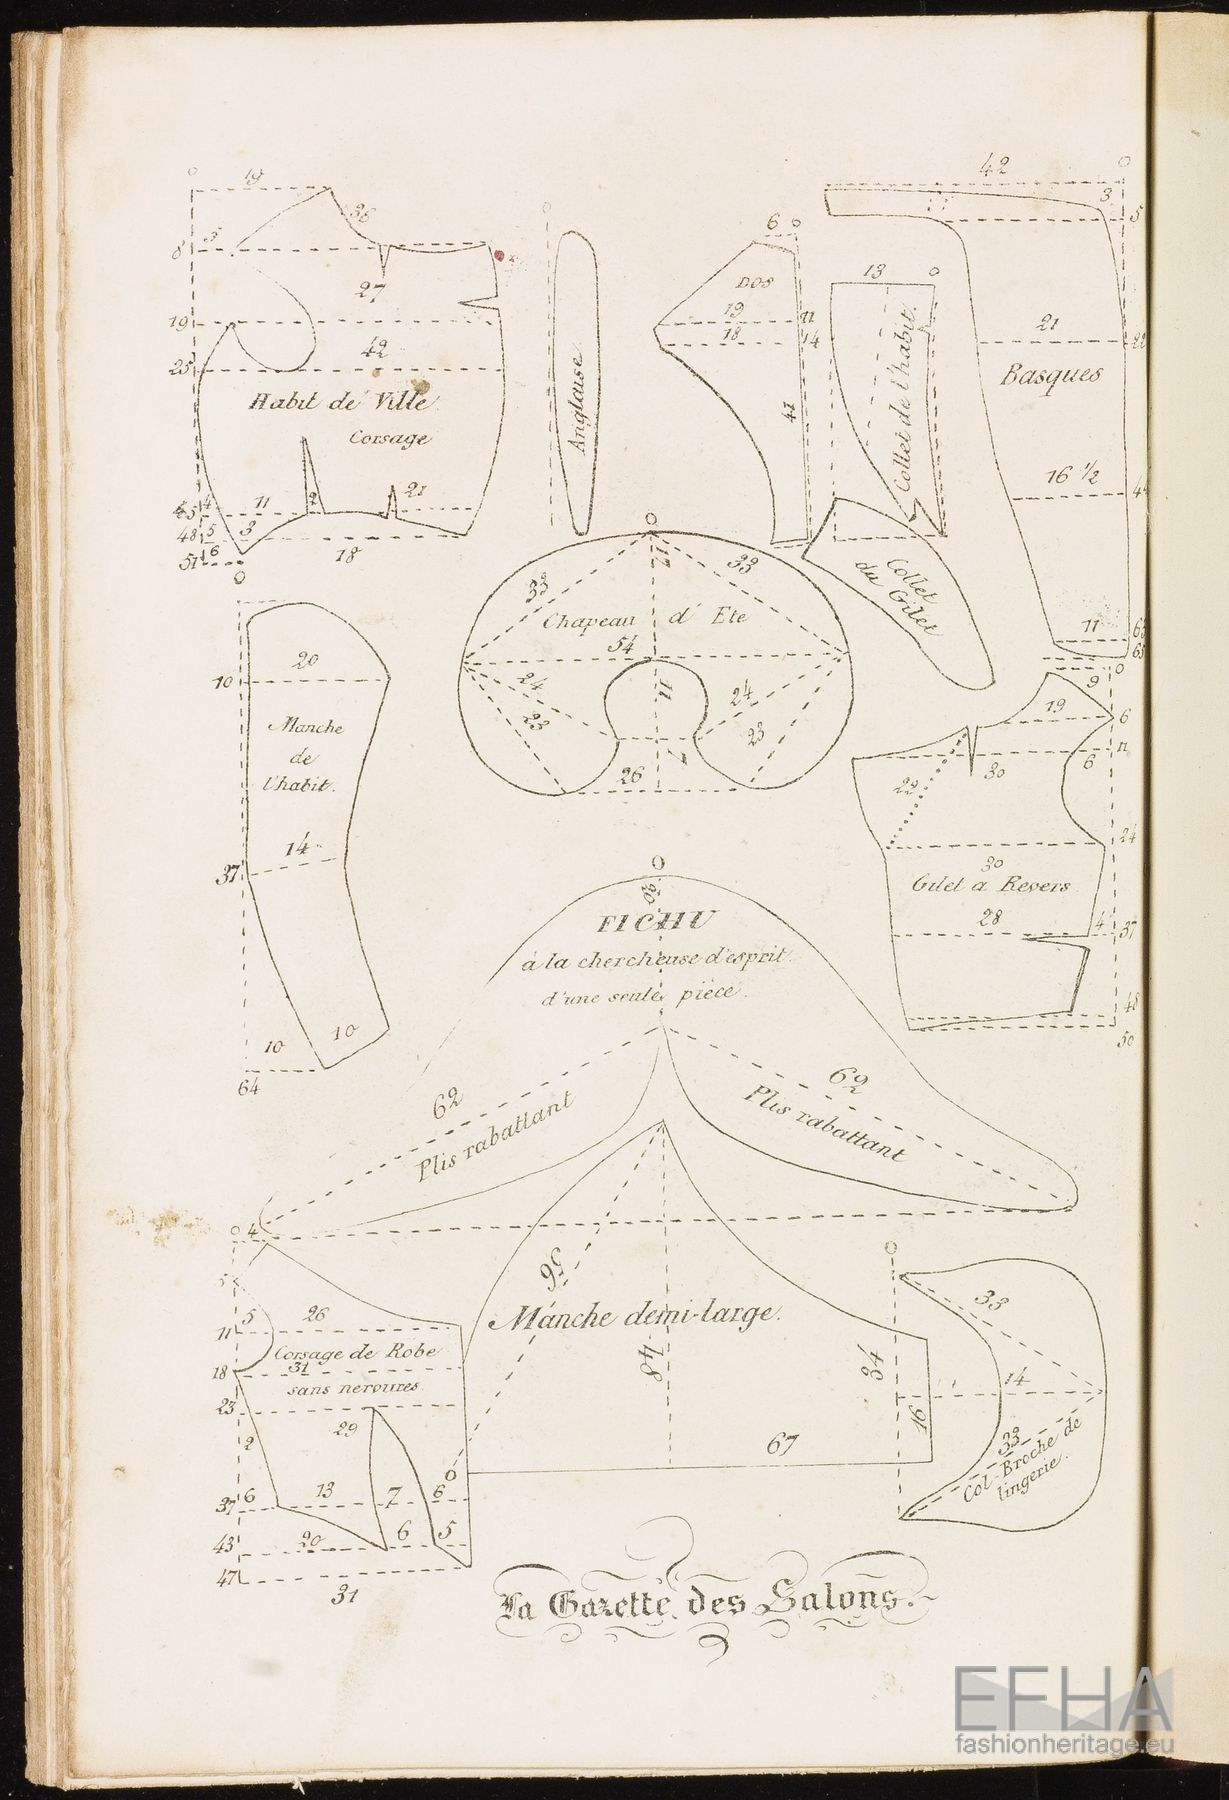 0
19
36
8
5
27
19
42
25
Habit de Ville.
Corsage
45
4
11
2
21
48
5
3
18
51
6
0
Anglaise
6 0
DOS
19
11
18
14
41
13
0
Collet de l'habit.
42
0
3
5
21
22
Basques
16 1/2
11
65
0
12
33
33
Chapeau d'Ete
54
24
11
24
23
23
7
26
Collet
du Gilet
0
9
19
6
6
30
22
24
30
Gilet a Revers
28
4
37
48
50
20
10
Manche
de
l'habit.
14
37
10
10
64
0
20
FICHU
à la chercheuse d'esprit
d'une seule pièce.
62
Plis rabattant
62
Plis rabattant
0 4
5
5
26
11
Corsage de Robe
18
31
sans nervures
23
29
2
37
6
13
7
6
43
20
6
5
47
31
56
Manche demi-large.
48
0
67
16
0
33
34
14
33
Col-Broche de
lingerie.
La Gazette des Salons.
EFHA
fashionheritage.eu